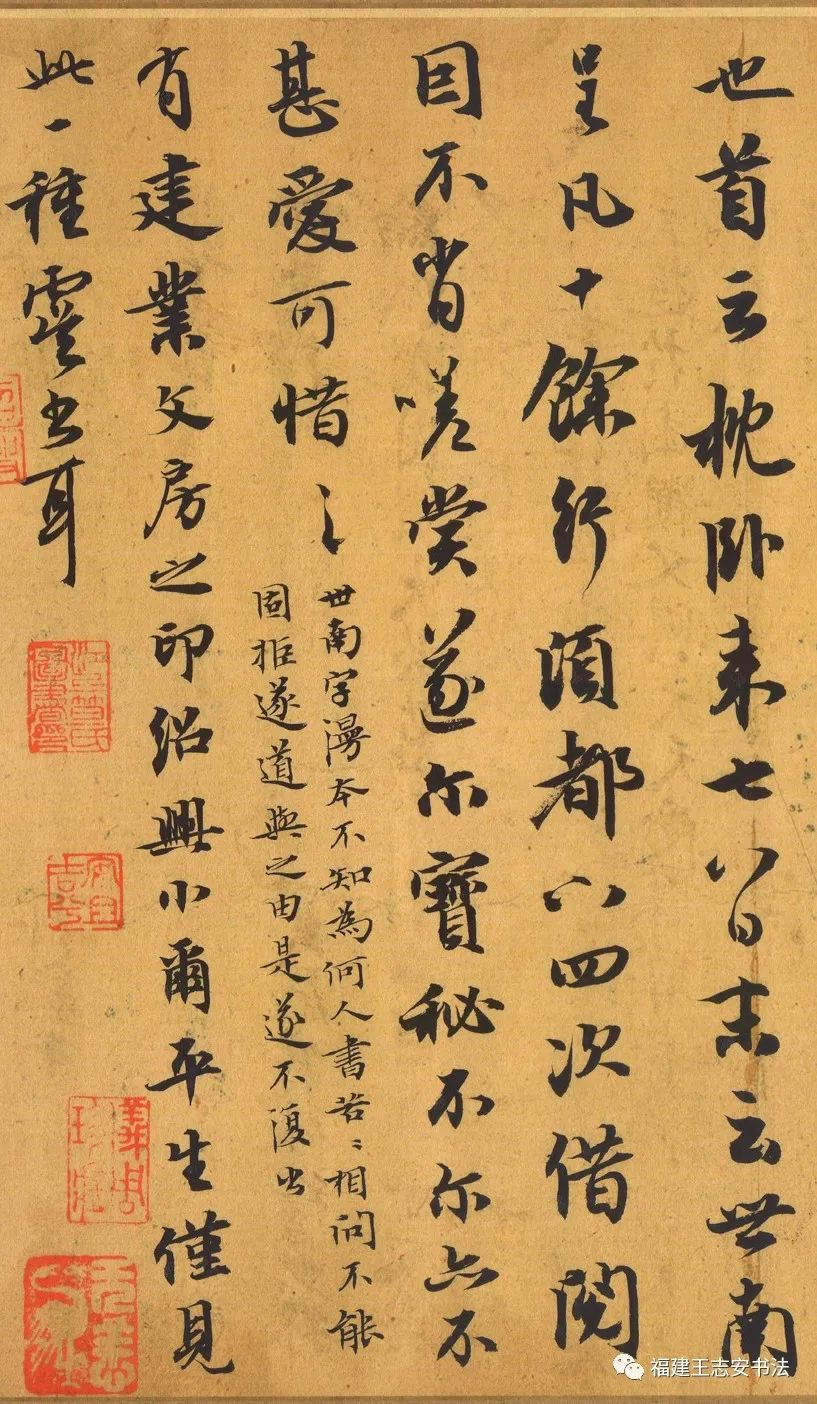 也首云枕卧来七八日末云世南
呈凡十餘行頃都下四次借閱
因不肖嗟賞遂尔寶秘不尔亦不
甚愛可惜々
世南字漫本不知為何人書苦々相問不能
固拒遂道與之由是遂不復出
有建業文房之印紹興小爾平生僅見
此一種虞書耳
福建王志安书法